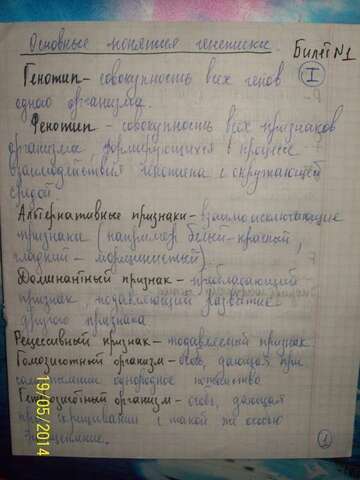 Основные понятия генетики.
Билет №1
I
Генотип – совокупность всех генов
одного организма.
Фенотип – совокупность всех признаков
организма, формирующихся в процессе
взаимодействия генотипа с окружающей
средой
Альтернативные признаки – взаимоисключающие
признаки (например белый – красный,
гладкий – морщинистый)
Доминантный признак – преобладающий
признак, подавляющий развитие
другого признака
Рецессивный признак – подавляемый признак
Гомозиготный организм – особь, дающая при
однородное потомство
Гетерозиготный организм – особь, дающая
при скрещивании с такой же особью
расщепление.
1
19/05/2014